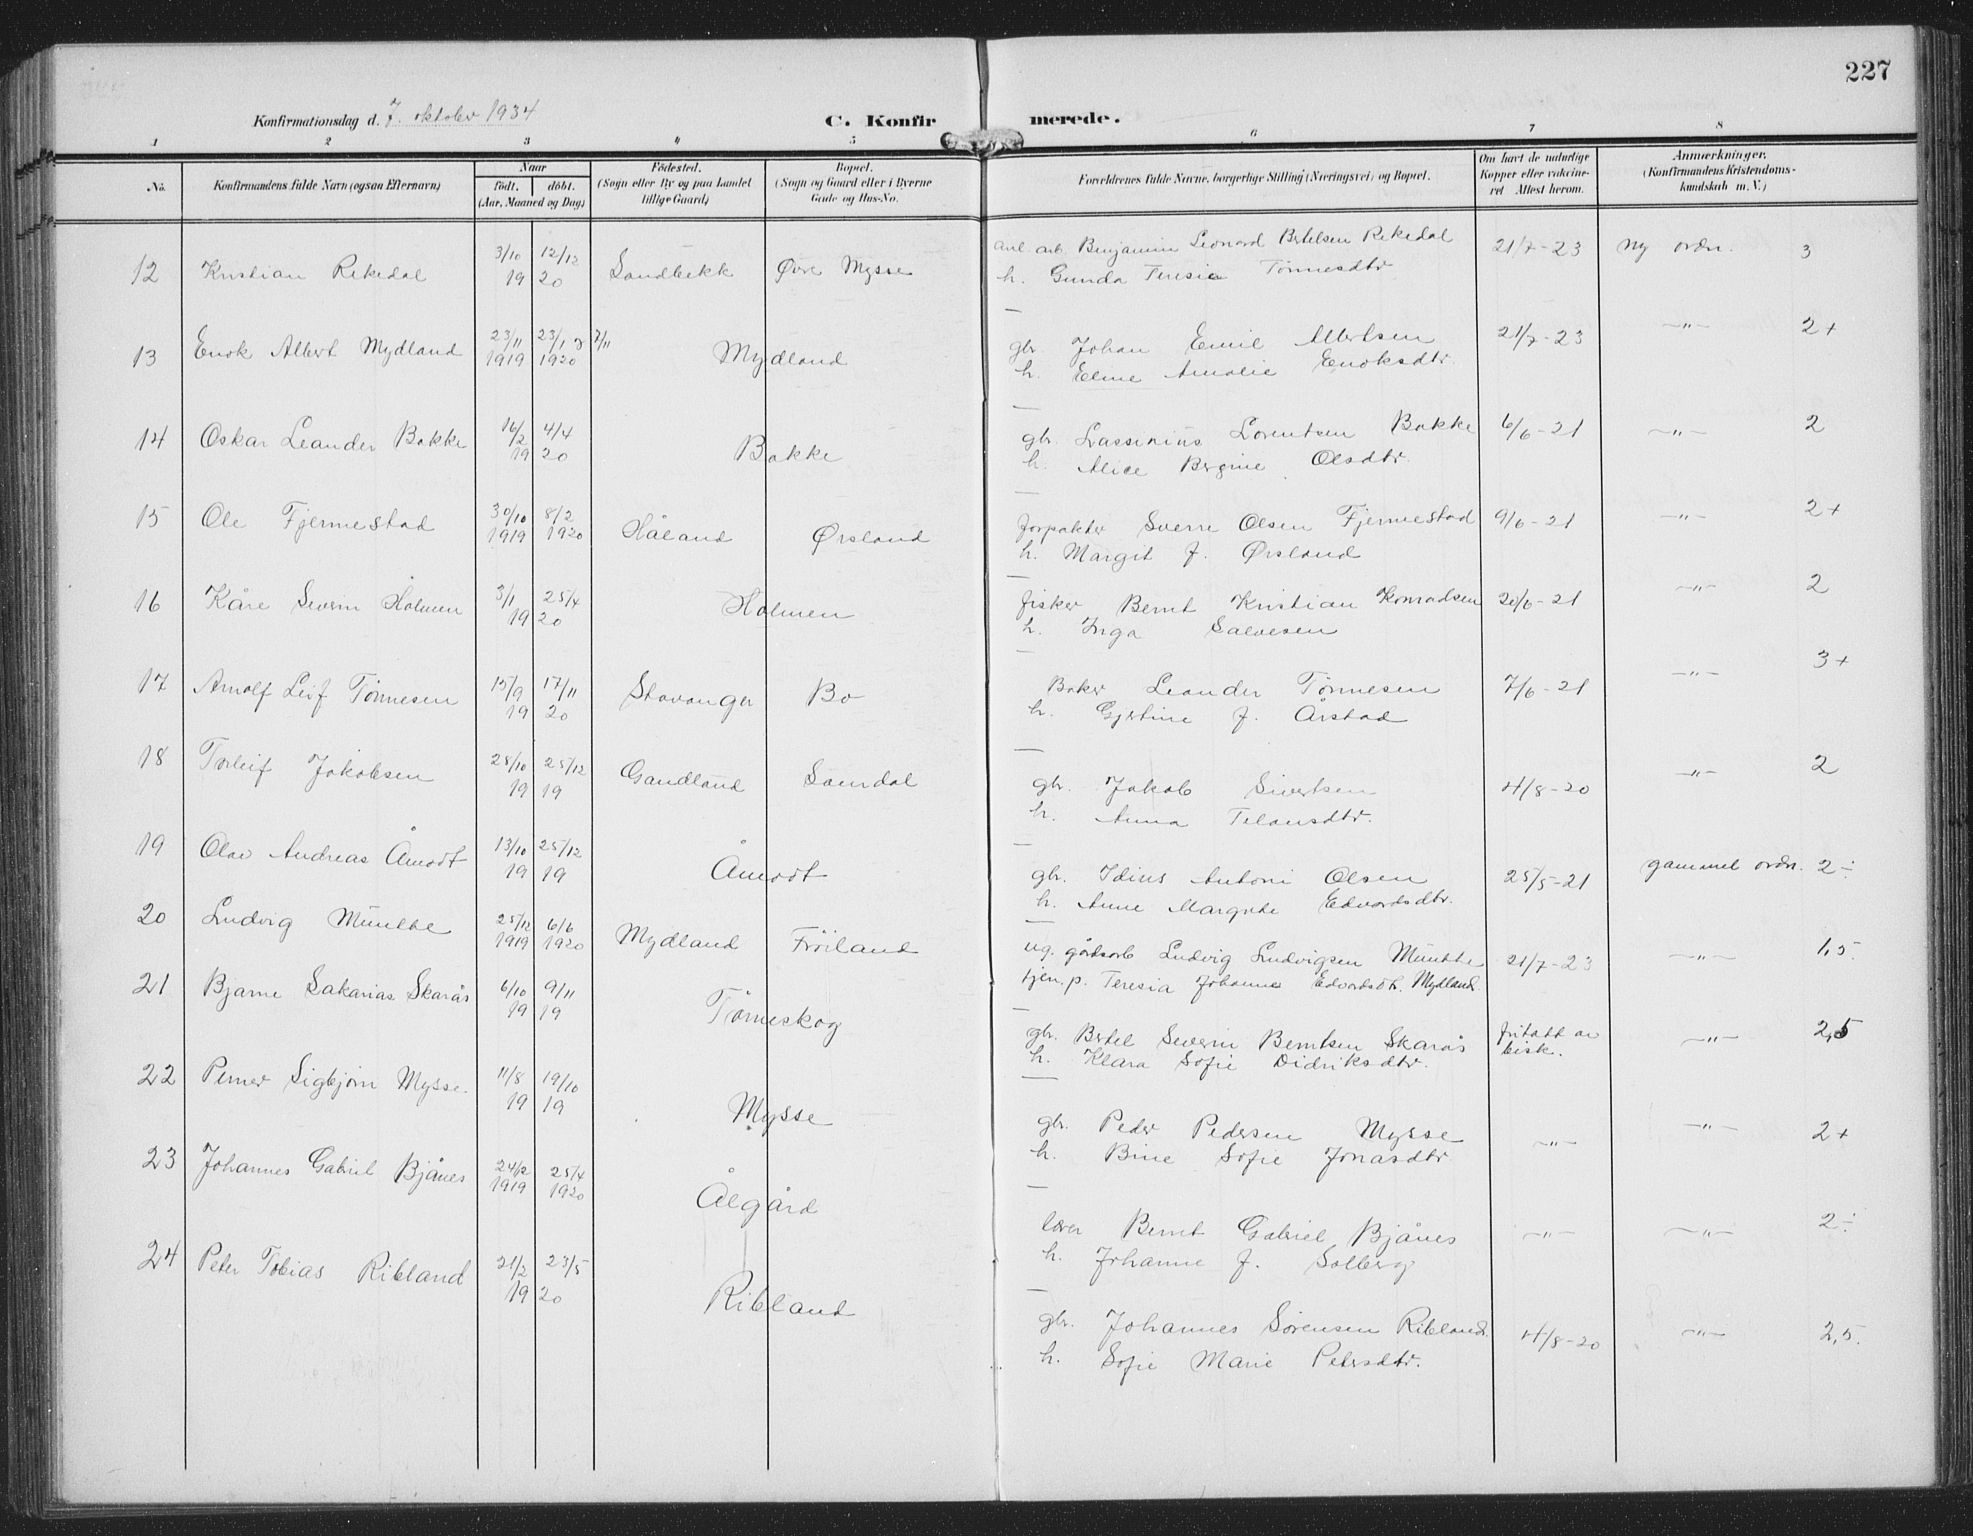 227
Konfirmationsdag d. 7. oktober 1934 C. Konfirmerede.
1 2 3 4 5 6 7 8
No. Konfirmandens fulde Navn (ogsaa Efternavn) Naar født. døbt. (Aar, Maaned og Dag) Fødested. (Sogn eller By og paa Landet tillige Gaard) Bopæl. (Sogn og Gaard eller i Byerne Gade og Hus-No. Forældrenes fulde Navne, borgerlige Stilling (Næringsvei) og Bopæl. Om havt de naturlige Kopper eller vaccineret Attest herom. Anmærkninger. (Konfirmandens Kristendomskundskab m. V.)
12 Kristian Rekedal 3/10 19 12/12 20 Sandbekk Øvre Mysse anl. arb. Benjamin Leonard Bertelsen Rekedal 21/7-23 ny ordn. 3
h. Gunda Teresie Tønnesdtr.
13 Enok Albert Mydland 23/11 1919 23/1 1920 7/11 Mydland gbr. Johan Emil Albertsen 21/7-23 —"— 2+
h. Eline Amalie Enoksdtr.
14 Oskar Leander Bakke 16/2 19 4/4 20 Bakke gbr. Lassinius Lorentsen Bakke 6/6-21 —"— 2
h. Alice Bergine Olsdtr.
15 Ole Fjermestad 30/10 1919 8/2 1920 Håland Ørsland forpakter Sverre Olsen Fjermestad 9/6-21 —"— 2+
h. Margit f. Ørsland
16 Kåre Severin Holmen 3/1 19 25/4 20 Holmen fisker Bernt Kristian Konradsen 20/6-21 —"— 2
h. Inga Salvesen
17 Arnolf Leif Tønnesen 15/9 19 17/11 20 Stavanger Bo Baker Leander Tønnesen 7/6-21 —"— 3+
h. Gjertine f. Årstad
18 Torleif Jakobsen 28/10 19 25/12 19 Gandland Samdal gbr. Jakob Sivertsen 4/8-20 —"— 2
h. Anna Telausdtr.
19 Olav Andreas Åmodt 13/10 19 25/12 19 Åmodt gbr. Idius Antoni Olsen 25/5-21 gammel ordn. 2÷
h. Anne Margrete Edvardsdtr.
20 Ludvig Munthe 25/12 1919 6/6 1920 Mydland Frøiland ug. gårdsarb Ludvig Ludvigsen Munthe 21/7-23 —"— 1,5.
tjen. p. Teresia Johanne Edvardsdtr. Mydland.
21 Bjarne Sakarias Skarås 6/10 19 9/11 19 Tønneskog gbr. Bertel Severin Berntsen Skarås fritatt av bisk. —"— 2,5
h. Klara Sofie Didriksdtr.
22 Perner Sigbjørn Mysse. 11/8 19 19/10 19 Mysse gbr. Peder Pedersen Mysse —"— —"— 2+
h. Bine Sofie Jonasdtr
23 Johannes Gabriel Bjånes 24/12 1919 25/4 1920 Ålgård lærer Bernt Gabriel Bjånes —"— —"— 2÷
h. Johanne f. Solberg
24 Peter Tobias Ribland 21/2 19 23/5 20 Ribland gbr. Johannes Sørensen Ribland. 4/8-20 —"— 2,5.
h. Sofie Marie Petersdtr.